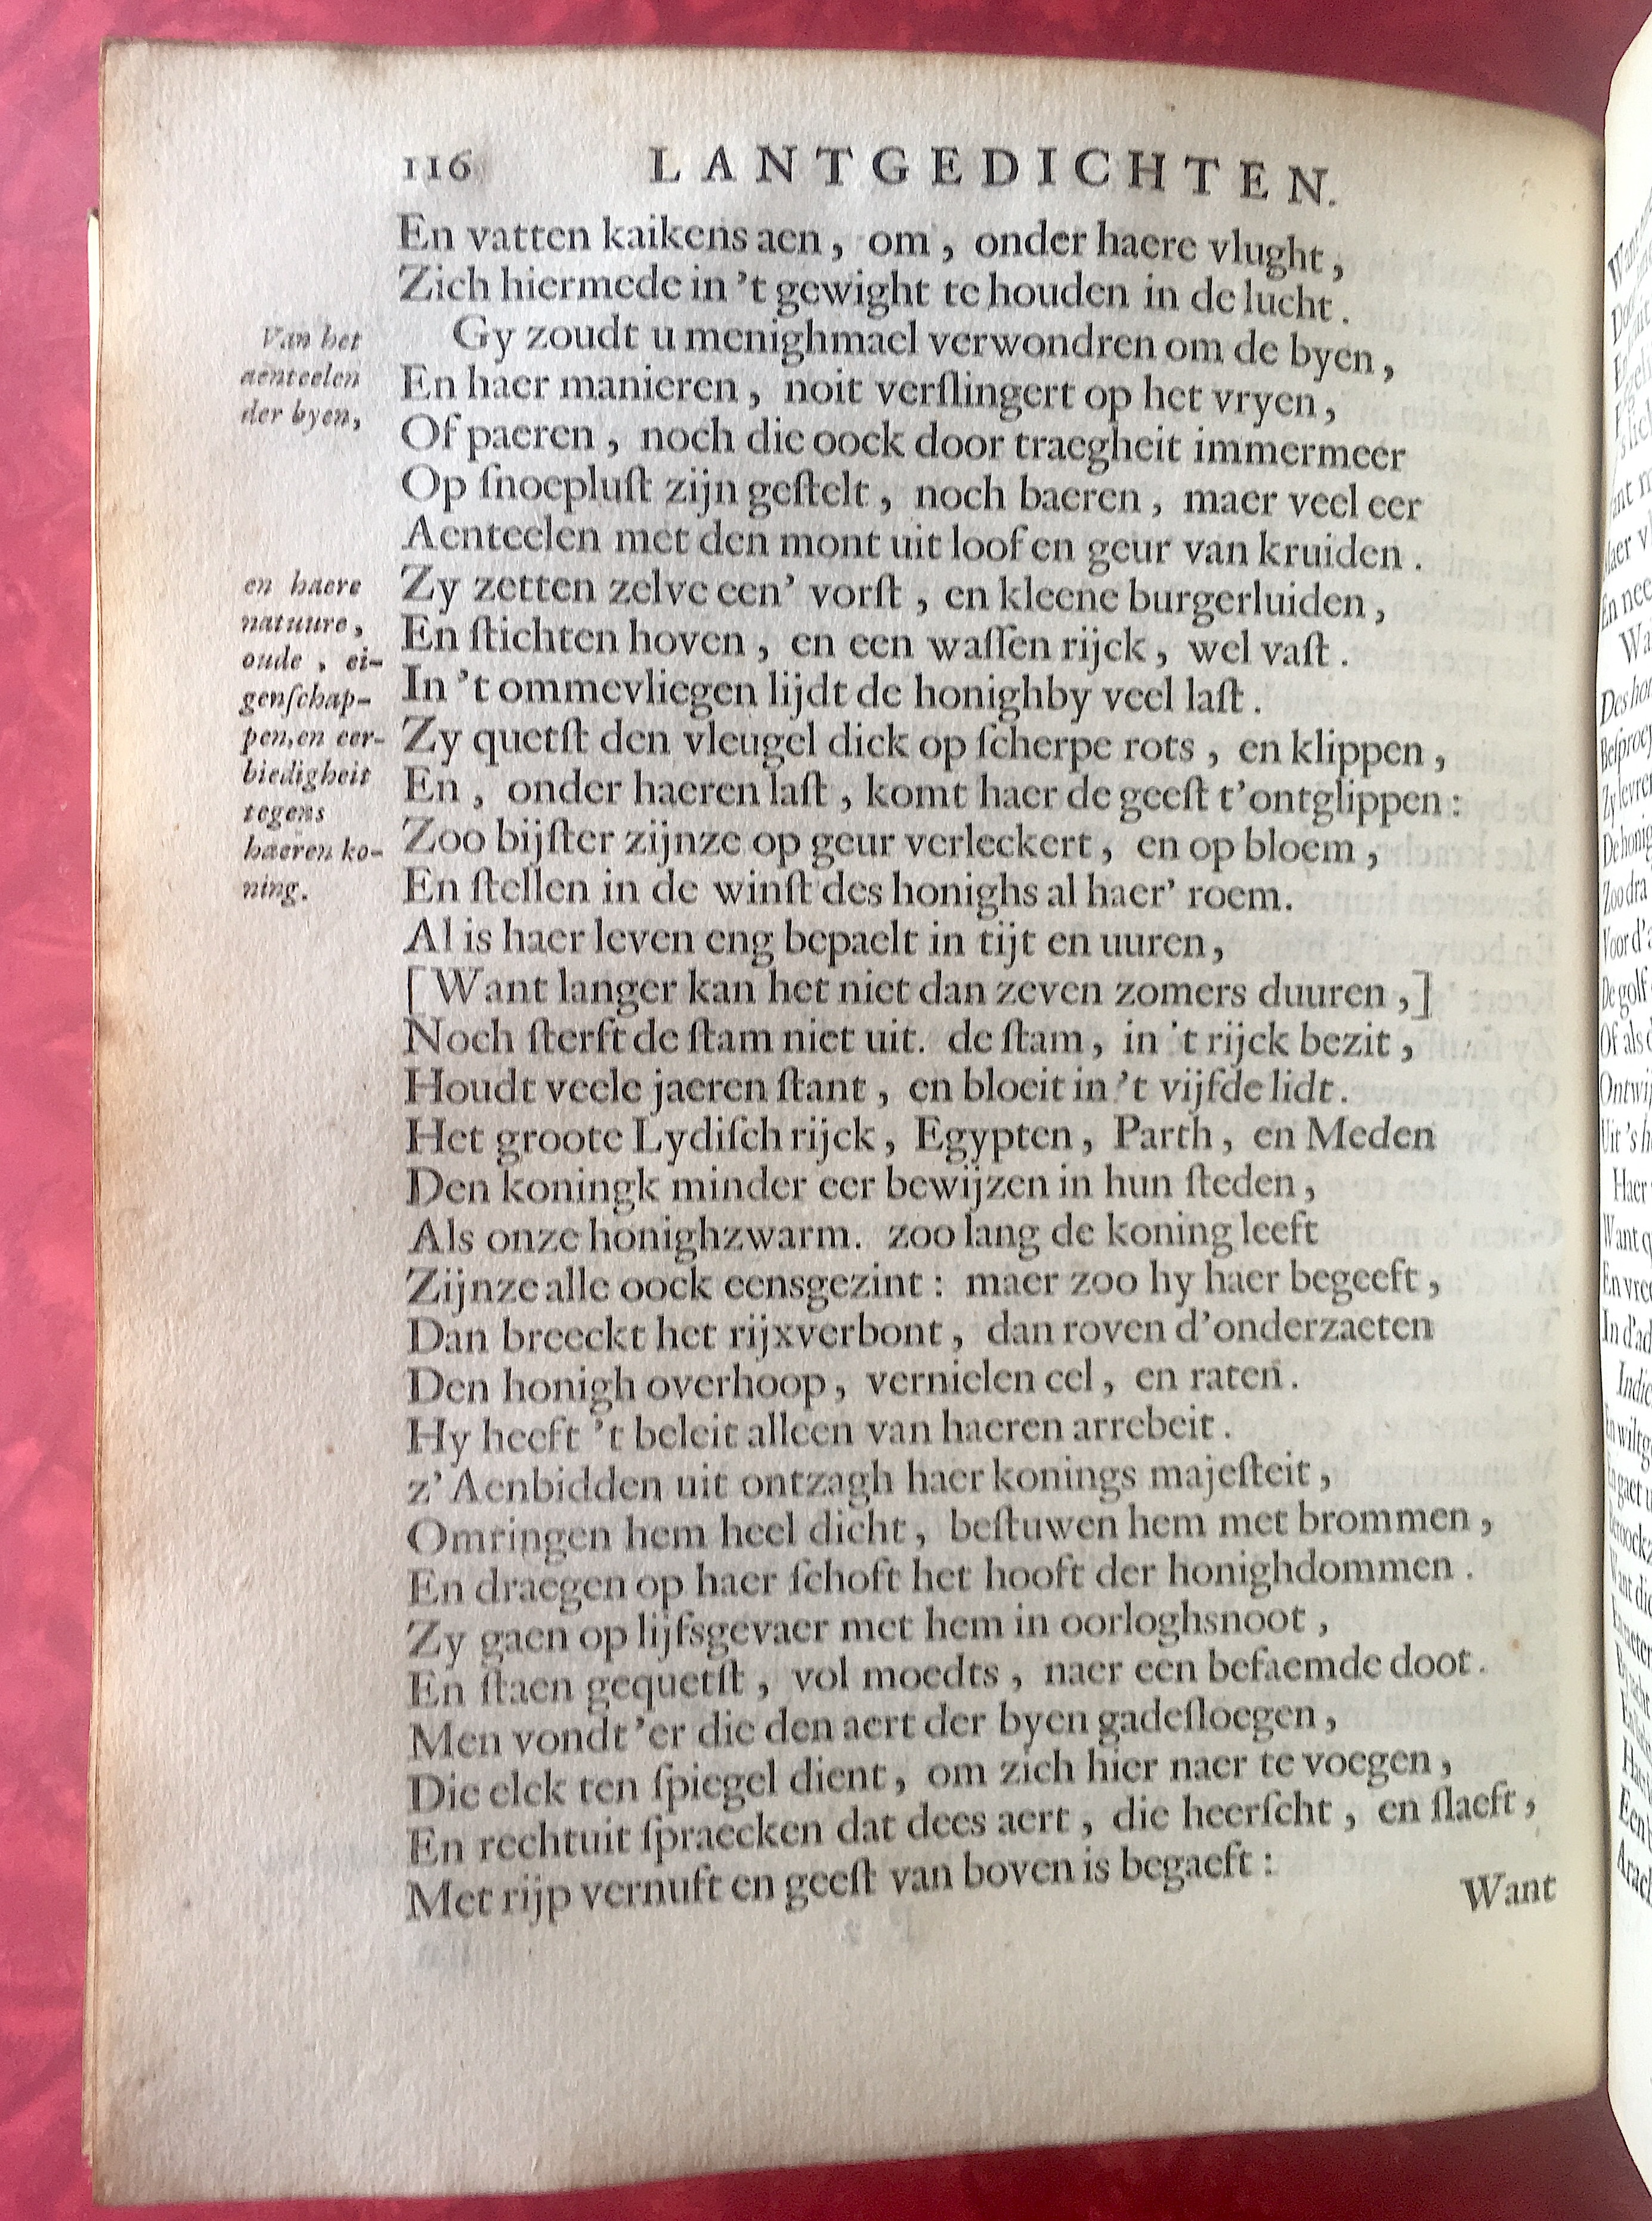 116 LANTGEDICHTEN.
En vatten kaikens aen, om, onder haere vlught,
Zich hiermede in 't gewight te houden in de lucht.
Van het
aenteelen
der byen,
Gy zoudt u menighmael verwondren om de byen,
En haer manieren, noit verſlingert op het vryen,
Of paeren, noch die oock door traegheit immermeer
Op ſnoepluſt zijn geſtelt, noch baeren, maer veel eer
Aenteelen met den mont uit loof en geur van kruiden.
en haere
natuure,
oude, ei-
genſchap-
pen, en eer-
biedigheit
tegens
haeren ko-
ning.
Zy zetten zelve een' vorſt, en kleene burgerluiden,
En ſtichten hoven, en een waſſen rijck, wel vaſt.
In 't ommevliegen lijdt de honighby veel laſt.
Zy quetſt den vleugel dick op ſcherpe rots, en klippen,
En, onder haeren laſt, komt haer de geeſt t'ontglippen:
Zoo bijſter zijnze op geur verleckert, en op bloem,
En ſtellen in de winſt des honighs al haer' roem.
Al is haer leven eng bepaelt in tijt en uuren,
[Want langer kan het niet dan zeven zomers duuren,]
Noch ſterft de ſtam niet uit. de ſtam, in 't rijck bezit,
Houdt veele jaeren ſtant, en bloeit in 't vijfde lidt.
Het groote Lydiſch rijck, Egypten, Parth, en Meden
Den koningk minder eer bewijzen in hun ſteden,
Als onze honighzwarm. zoo lang de koning leeft
Zijnze alle oock eensgezint: maer zoo hy haer begeeft,
Dan breeckt het rijxverbont, dan roven d'onderzaeten
Den honigh overhoop, vernielen cel, en raten.
Hy heeft 't beleit alleen van haeren arrebeit.
z'Aenbidden uit ontzagh haer konings majeſteit,
Omringen hem heel dicht, beſtuwen hem met brommen,
En draegen op haer ſchoft het hooft der honighdommen.
Zy gaen op lijfsgevaer met hem in oorloghsnoot,
En ſtaen gequetſt, vol moedts, naer een befaemde doot.
Men vondt'er die den aert der byen gadeſloegen,
Die elck ten ſpiegel dient, om zich hier naer te voegen,
En rechtuit ſpraecken dat dees aert, die heerſcht, en ſlaeft,
Met rijp vernuft en geeſt van boven is begaeft:
Want